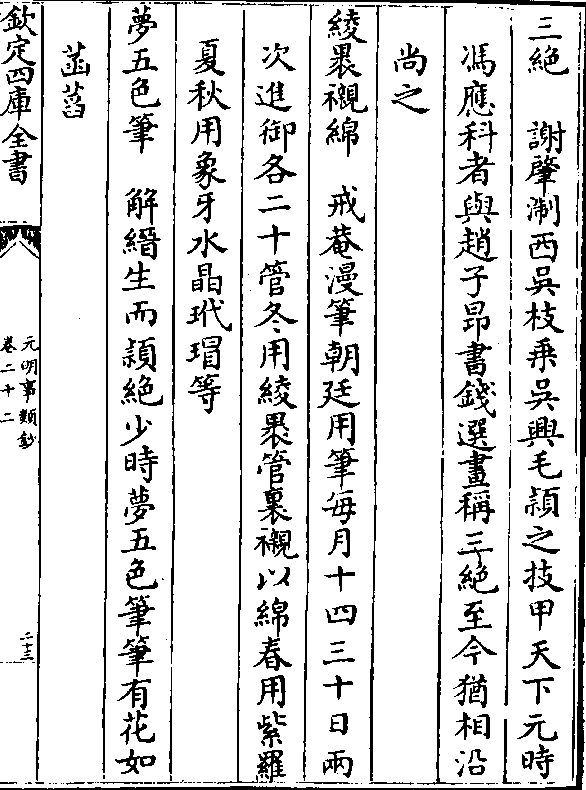 三絶　謝肇淛西吳枝乗吳興毛潁之技甲天下元時
馮應科者與趙子昂書錢選畫稱三絶至今猶相沿
尚之
綾褁襯綿　戒菴漫筆朝廷用筆每月十四三十日兩
次進御各二十管冬用綾褁管裏襯以綿春用紫羅
夏秋用象牙水晶玳瑁等
夢五色筆　解縉生而頴絶少時夢五色筆筆有花如
菡萏
欽定四庫全書
元明事類鈔
卷二十二
二十三